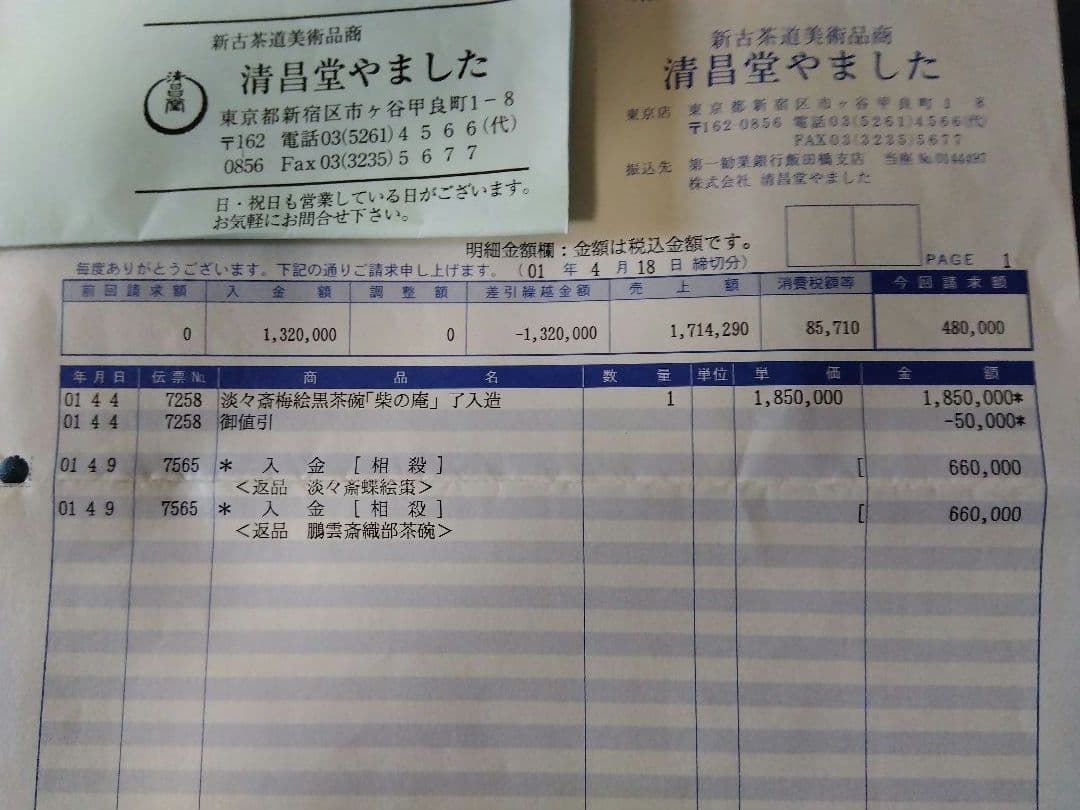 新古茶道美術品商
清昌堂やました
清昌堂
東京都新宿区市ヶ谷甲良町1-8
〒162 電話03(5261)4566(代)
0856 Fax03(3235)5677
日・祝日も営業している日がございます。
お気軽にお問合せ下さい。
新古茶道美術品商
清昌堂やました
東京店 東京都新宿区市ヶ谷甲良町1-8
〒162-0856 電話03(5261)4566(代)
FAX03(3235)5677
振込先 第一勧業銀行飯田橋支店 当座
株式会社 清昌堂やました
明細金額欄:金額は税込金額です。
毎度ありがとうございます。下記の通りご請求申し上げます。(01 年 4 月 18 日 締切分)
PAGE 1
前回請求額 入金額 調整額 差引繰越金額 売上額 消費税額等 今回請求額
0 1,320,000 0 -1,320,000 1,714,290 85,710 480,000
年月日 伝票№ 商品名 数量 単位 単価 金額
01 4 4 7258 淡々斎梅絵黒茶碗「柴の庵」了入造 1 1,850,000 1,850,000*
01 4 4 7258 御値引 -50,000*
01 4 9 7565 * 入 金 [ 相 殺 ] [ 660,000
<返品 淡々斎蝶絵棗>
01 4 9 7565 * 入 金 [ 相 殺 ] [ 660,000
<返品 鵬雲斎織部茶碗>